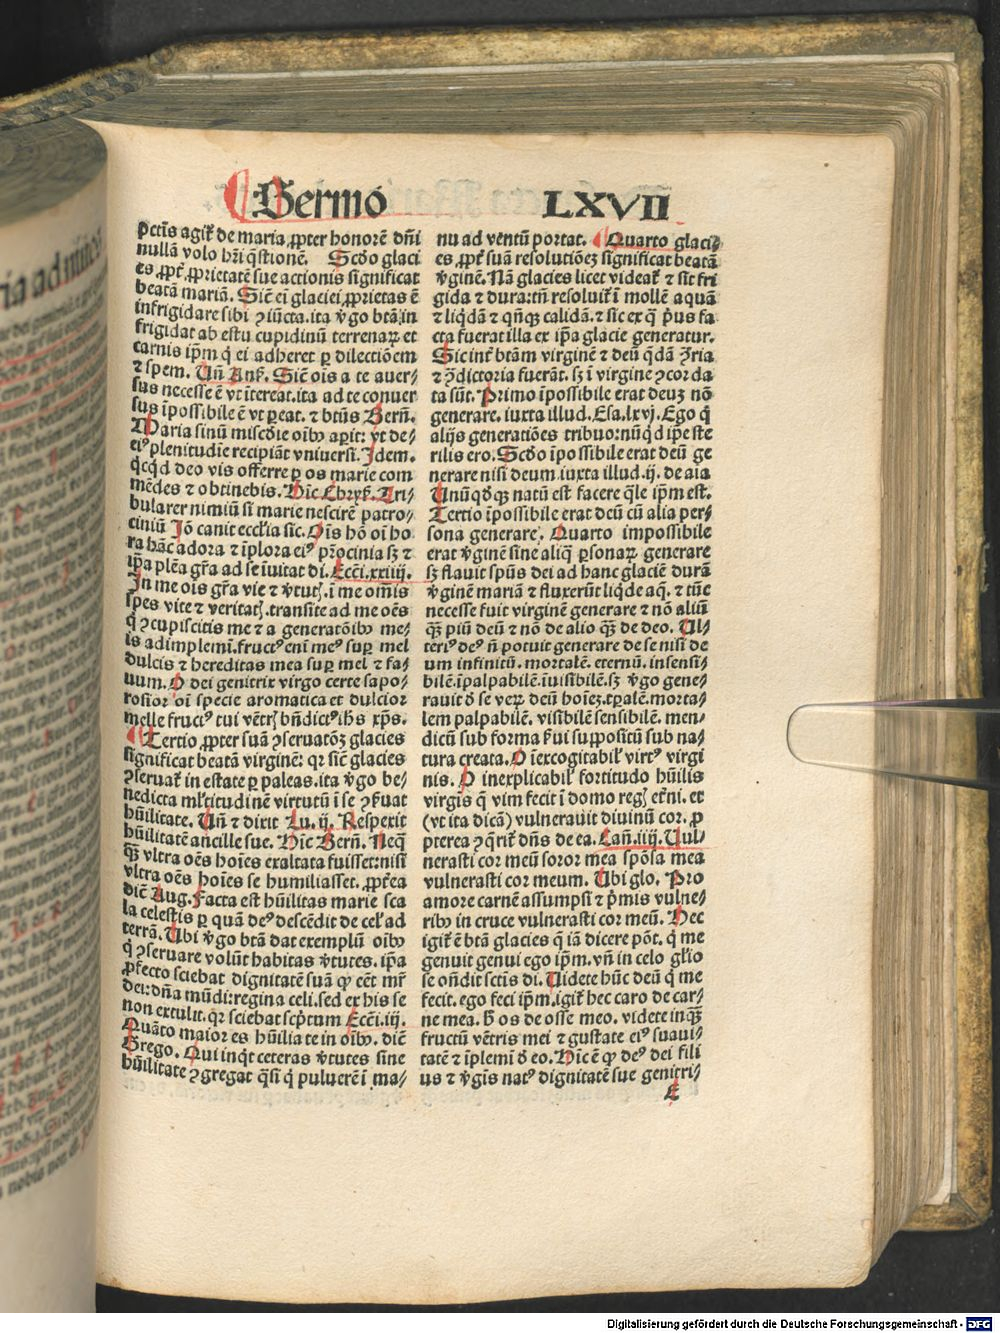 Sermo LXVII
pctīs agit̄ de maria, ꝓpter honorē dñi
nullā volo hr̄i q̄stionē. Scd̄o glaci
es ꝓpt̄ ꝓprietatē sue actionis significat
beatā mariā. Sic̄ ei glaciei ꝓprietas ē
infrigidare sibi ꝯiūcta. ita v̄go btā, in
frigidat ab estu cupidinū terrenaꝝ et
carnis ip̄m q̄ ei adheret ꝑ dilectiōem
⁊ spem. Uñ Ans̄. Sic̄ oīs a te auer⸗
sus necesse ē vt ītereat. ita ad te conuer
sus īpossibile ē vt ꝑeat. ⁊ btūs Berñ.
Maria sinū misc̄die oībꝰ aꝑit: vt de⸗
eiꝰ plenitudīe recipiāt vniuersi. Idem.
qc̄qd̄ deo vis offerre ꝑ os marie com
mēdes ⁊ obtinebis. Hīc Chrys̄. Tri⸗
bularer nimiū si marie nescirē patro⸗
ciniū Iō canit eccl̄ia sic. Oīs hō oī ho
ra hāc adora ⁊ īplora eiꝰ pr̄ocinia sꝫ ⁊
ip̄a plēa gr̄a ad se īuitat dī. Ecci̅. xxiiij.
In me oīs gr̄a vie ⁊ v̄tutꝭ. ī me om̄is
spes vite ⁊ veritatꝭ. transite ad me oēs
q̄ ꝯcupiscitis me ⁊ a generatōibꝰ me⸗
is adimplemī. fructꝰ enī meꝰ suꝑ mel
dulcis ⁊ hereditas mea suꝑ mel ⁊ fa⸗
uum. O dei genitrix virgo certe sapo⸗
rosior oī specie aromatica et dulcior
melle fructꝰ tui vētrꝭ bñdictꝰ ih̄s xp̄s.
Tertio ꝓpter suā ꝯseruatōꝫ glacies
significat beatā virginē: qr̄ sic̄ glacies
ꝯseruat̄ in estate ꝑ paleas. ita v̄go be⸗
nedicta ml̄titudinē virtutū ī se ꝯs̄uat
hūilitate. Uñ ⁊ dixit Lu. ij. Respexit
hūilitatē ancille sue. Hīc Berñ. Neqꝫ
qꝫ vltra oēs hoīes exaltata fuisset: nisi
vltra oēs hoīes se humiliasset. ꝓpt̄ea
dic̄ Aug. Facta est hūilitas marie sca
la celestis ꝑ quā deꝰ descēdit de cel̄ ad
terrā. Ubi v̄go btā dat exemplū oībꝰ
q̄ ꝯseruare volūt habitas v̄tutes. ip̄a
ꝓfecto sciebat dignitatē suā qꝫ eēt mr̄
dei: dn̄a mūdi: regina celi. sed ex his se
non extulit. qr̄ sciebat scp̄tum Ecci̅. iij.
Quāto maior es hūilia te in oībꝰ. dic̄
Grego. Qui inqt̄ ceteras v̄tutes sine
hūilitate ꝯgregat q̄si q̄ puluerē ī ma⸗
nu ad ventū portat. Quarto glaci⸗
es, ꝓpt̄ suā resolutiōeꝫ significat beatā
v̄ginē. Nā glacies licet videat̄ ⁊ sit fri
gida ⁊ dura: tn̄ resoluit̄ ī mollē aquā
⁊ liqd̄ā ⁊ qn̄qꝫ calidā. ⁊ sic ex q̄ pͥus fa
cta fuerat illa ex ip̄a glacie generatur.
Sic int̄ btām virginē ⁊ deū qd̄ā ꝯr̄ia
⁊ ꝯ̄dictoria fuerāt. sꝫ ī virgine ꝯcorda
ta sūt. Primo īpossibile erat deuꝫ nō
generare. iuxta illud. Esa. lxvj. Ego q̄
alijs generatiōes tribuo: nūqd̄ ip̄e ste
rilis ero. Scd̄o īpossibile erat deū ge
nerare nisi deum iuxta illud. ij. de aīa
Unūqd̄qꝫ natū est facere q̄le ip̄m est.
Tertio īpossibile erat deū cū alia per⸗
sona generare. Quarto impossibile
erat v̄ginē sine aliq̄ ꝑsonaꝝ generare
sꝫ flauit spūs dei ad hanc glaciē durā
v̄ginē mariā ⁊ fluxerūt liqd̄e aq̄. ⁊ tūc
necesse fuit virginē generare ⁊ nō aliū
qꝫ piū deū ⁊ nō de alio qꝫ de deo. Ul⸗
teriꝰ deꝰ ñ potuit generare de se nisi de
um infinitū. mortalē. eternū. insensi⸗
bilē. īpalpabilē. īuisibilē. sꝫ v̄go gene⸗
rauit d̄ se veꝝ deū hoīeꝫ. tꝑalē. morta⸗
lem palpabilē. visibilē sensibilē. men⸗
dicū sub forma s̄ui suppositū sub na⸗
tura creata. O īexcogitabil̄ virtꝰ virgi
nis. O inexplicabil̄ fortitudo hūilis
virgis q̄ vim fecit ī domo regꝭ et̄ni. et
(vt ita dicā) vulnerauit diuinū cor. ꝓ
pterea ꝯqrit̄ dn̄s de ea. Cañ. iiij. Uul⸗
nerasti cor meū soror mea spōsa mea
vulnerasti cor meum. Ubi glo. Pro
amore carnē assumpsi ⁊ pͥmis vulne⸗
ribꝰ in cruce vulnerasti cor meū. Hec
igit̄ ē btā glacies q̄ iā dicere pōt. q̄ me
genuit genui ego ip̄m. vñ in celo gl̄io
se on̄dit sctīs dī. Uidete hūc deū q̄ me
fecit. ego feci ip̄m. igit̄ hec caro de car⸗
ne mea. h̄ os de osse meo. videte inqꝫ
fructū vētris mei ⁊ gustate eiꝰ suaui⸗
tatē ⁊ īplemī d̄ eo. Hīc ē qꝫ deꝰ dei fili
us ⁊ v̄gīs natꝰ dignitatē sue genitri⸗
E
Digitalisierung gefördert durch die Deutsche Forschungsgemeinschaft - DFG